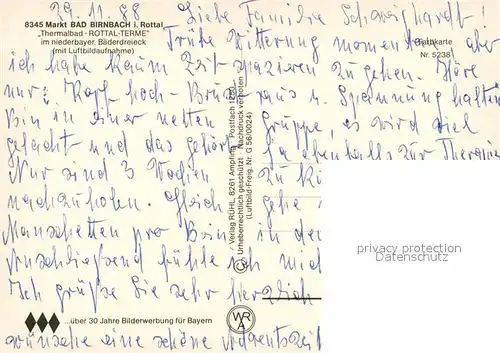 29.11.88
8345 Markt BAD BIRNBACH i. Rottal
„Thermalbad - ROTTAL-TERME"
im niederbayer. Bäderdreieck
(mit Luftbildaufnahme)
Farbkarte
Nr. 5238
Liebe Familie Schweighardt!
Trübe Witterung momentan, aber
ich habe kaum Zeit spazieren zu gehen. Höre
nur: Kopf hoch - Brust raus u. Spannung halten
Bin in einer netten Gruppe, es wird viel
gelacht und das gehört ja ebenfalls zur Therapie
Nur sind 3 Wochen zu
nachzuholen. Gleich gehe
Manschetten pro Bein in de
Anschließend fühle ich mich
Ich grüße Sie sehr herzlich
wünsche eine schöne Adventszeit
© Verlag RÜHL, 8261 Ampfing, Postfach 1250
Urheberrechtlich geschützt Nachdruck verboten
(Luftbild-Freig. Nr. G 56/0024)
privacy protection
Datenschutz
...über 30 Jahre Bilderwerbung für Bayern
WRA